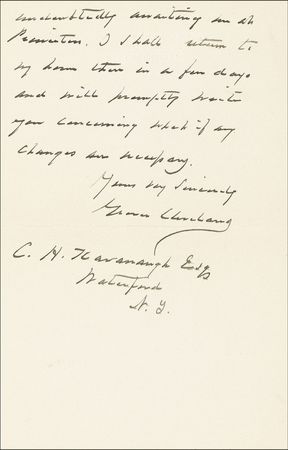 undoubtedly awaiting me at
Princeton. I shall return to
my home there in a few days
and will promptly write
you concerning what if any
changes are necessary.
Yours very Sincerely
Grover Cleveland
C. H. Kavanaugh Esq
Waterford
N. Y.